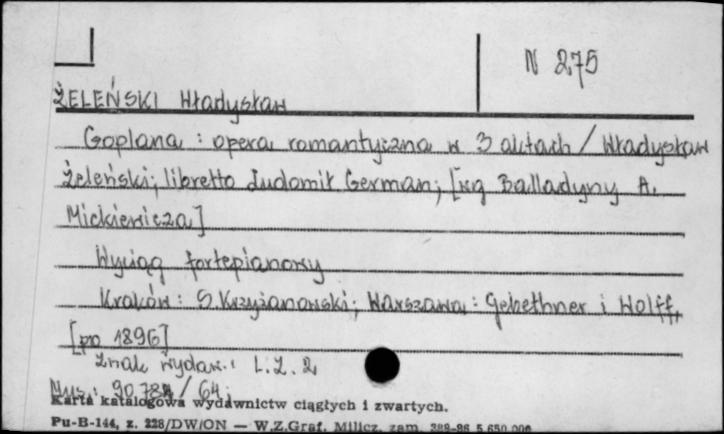 N 275
ŻELEŃSKI Władysław
Goplana : opera romantyczna w 3 aktach / Władysław
Żeleński; libretto Ludomił German; [wg Balladyny A.
Mickiewicza]
Wyciąg fortepianowy
Kraków : S. Krzyżanowski; Warszawa : Gebethner i Wolff,
[po 1896]
Znak wydaw.: L. Z. 2
Muz.: 90 784 / 64.
Karta katalogowa wydawnictw ciągłych i zwartych.
Pu-B-144, z. 228/DW/ON — W.Z.Graf. Milicz, zam. 388-86 5.650.000